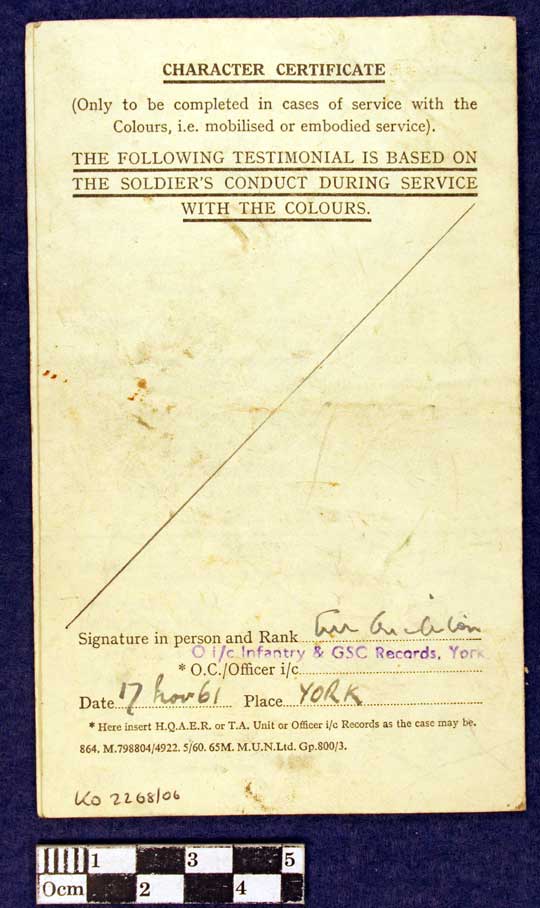 CHARACTER CERTIFICATE
(Only to be completed in cases of service with the
Colours, i.e. mobilised or embodied service).
THE FOLLOWING TESTIMONIAL IS BASED ON
THE SOLDIER'S CONDUCT DURING SERVICE
WITH THE COLOURS.
Signature in person and Rank
O i/c Infantry & GSC Records, York
* O.C./Officer i/c
Date 17 Nov 61 Place YORK
* Here insert H.Q.A.E.R. or T.A. Unit or Officer i/c Records as the case may be.
864. M.798804/4922. 5/60. 65M. M.U.N.Ltd. Gp.800/3.
KO 2268/06
1 3 5
0cm 2 4